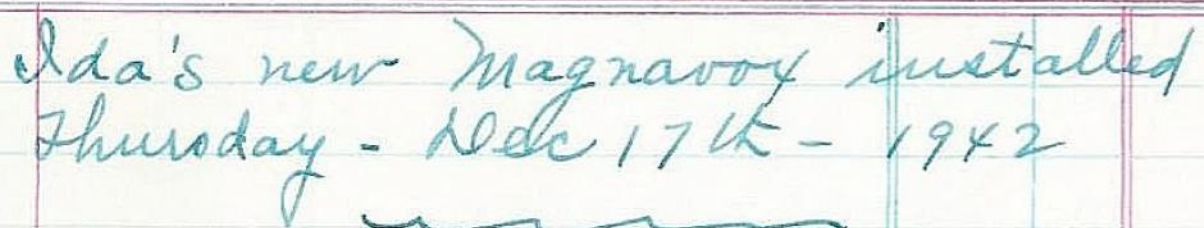 Ida's new Magnavox installed
Thursday - Dec 17th - 1942